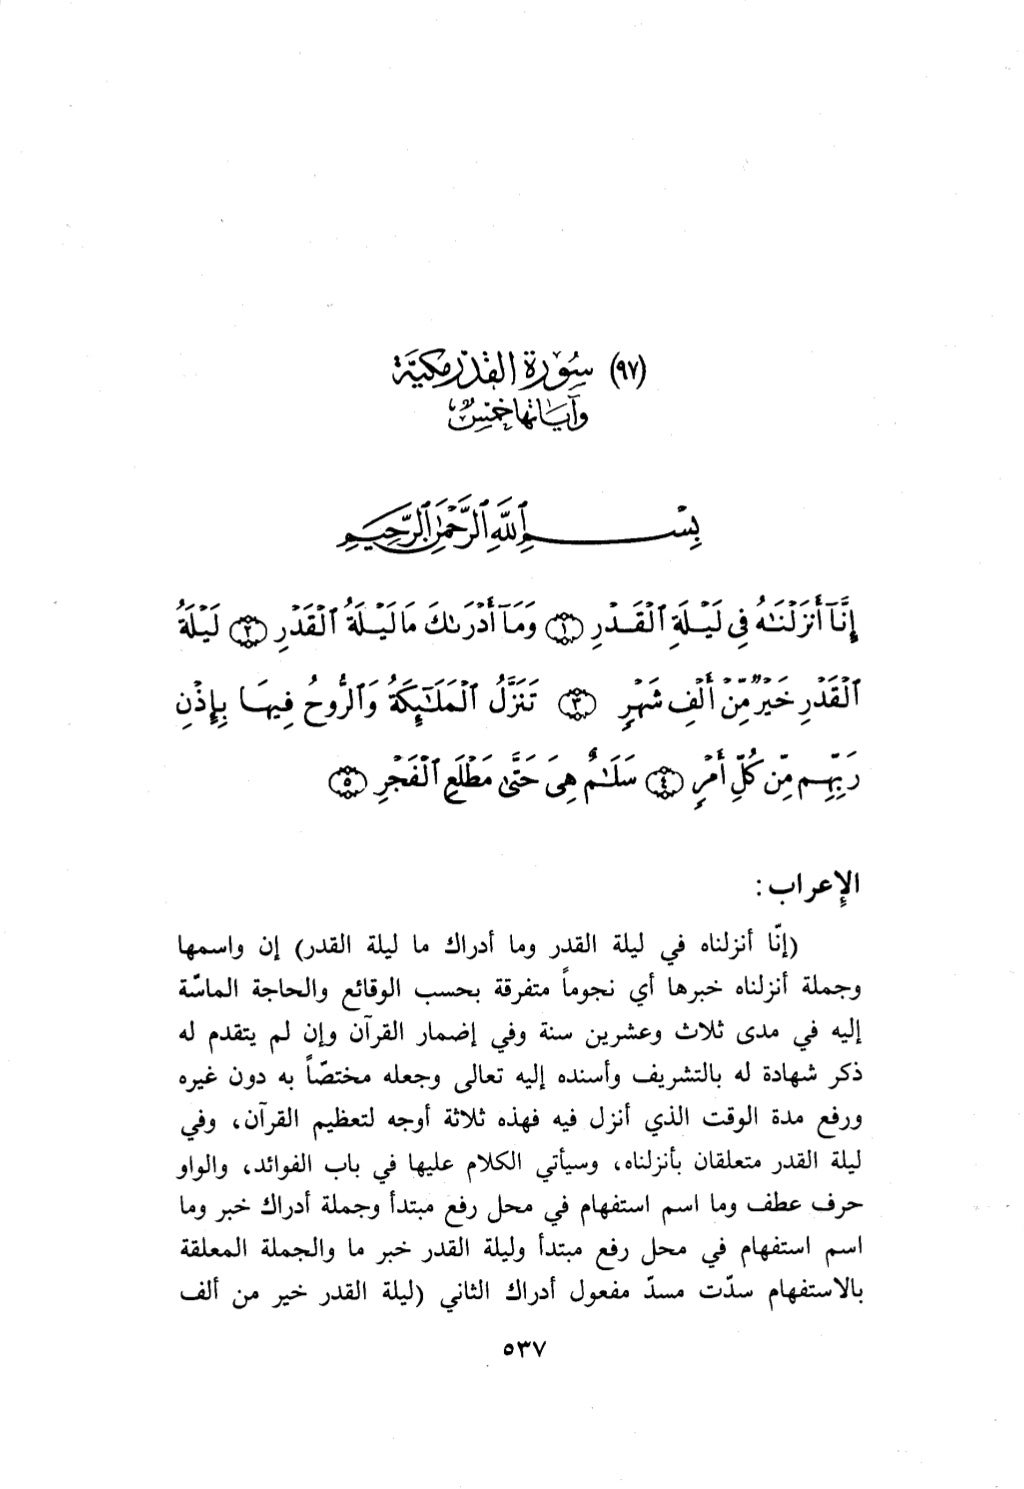 (٩٧) سُورة القدر مكيّة
وآياتها خمسٌ
بِسْمِ ٱللَّهِ ٱلرَّحْمَٰنِ ٱلرَّحِيمِ
إِنَّآ أَنزَلْنَٰهُ فِى لَيْلَةِ ٱلْقَدْرِ ﴿١﴾ وَمَآ أَدْرَىٰكَ مَا لَيْلَةُ ٱلْقَدْرِ ﴿٢﴾ لَيْلَةُ
ٱلْقَدْرِ خَيْرٌ مِّنْ أَلْفِ شَهْرٍ ﴿٣﴾ تَنَزَّلُ ٱلْمَلَٰٓئِكَةُ وَٱلرُّوحُ فِيهَا بِإِذْنِ
رَبِّهِم مِّن كُلِّ أَمْرٍ ﴿٤﴾ سَلَٰمٌ هِىَ حَتَّىٰ مَطْلَعِ ٱلْفَجْرِ ﴿٥﴾
الإعراب :
(إنّا أنزلناه في ليلة القدر وما أدراك ما ليلة القدر) إن واسمها
وجملة أنزلناه خبرها أي نجوماً متفرقة بحسب الوقائع والحاجة الماسّة
إليه في مدى ثلاث وعشرين سنة وفي إضمار القرآن وإن لم يتقدم له
ذكر شهادة له بالتشريف وأسنده إليه تعالى وجعله مختصّاً به دون غيره
ورفع مدة الوقت الذي أنزل فيه فهذه ثلاثة أوجه لتعظيم القرآن، وفي
ليلة القدر متعلقان بأنزلناه، وسيأتي الكلام عليها في باب الفوائد، والواو
حرف عطف وما اسم استفهام في محل رفع مبتدأ وجملة أدراك خبر وما
اسم استفهام في محل رفع مبتدأ وليلة القدر خبر ما والجملة المعلقة
بالاستفهام سدّت مسدّ مفعول أدراك الثاني (ليلة القدر خير من ألف
٥٣٧